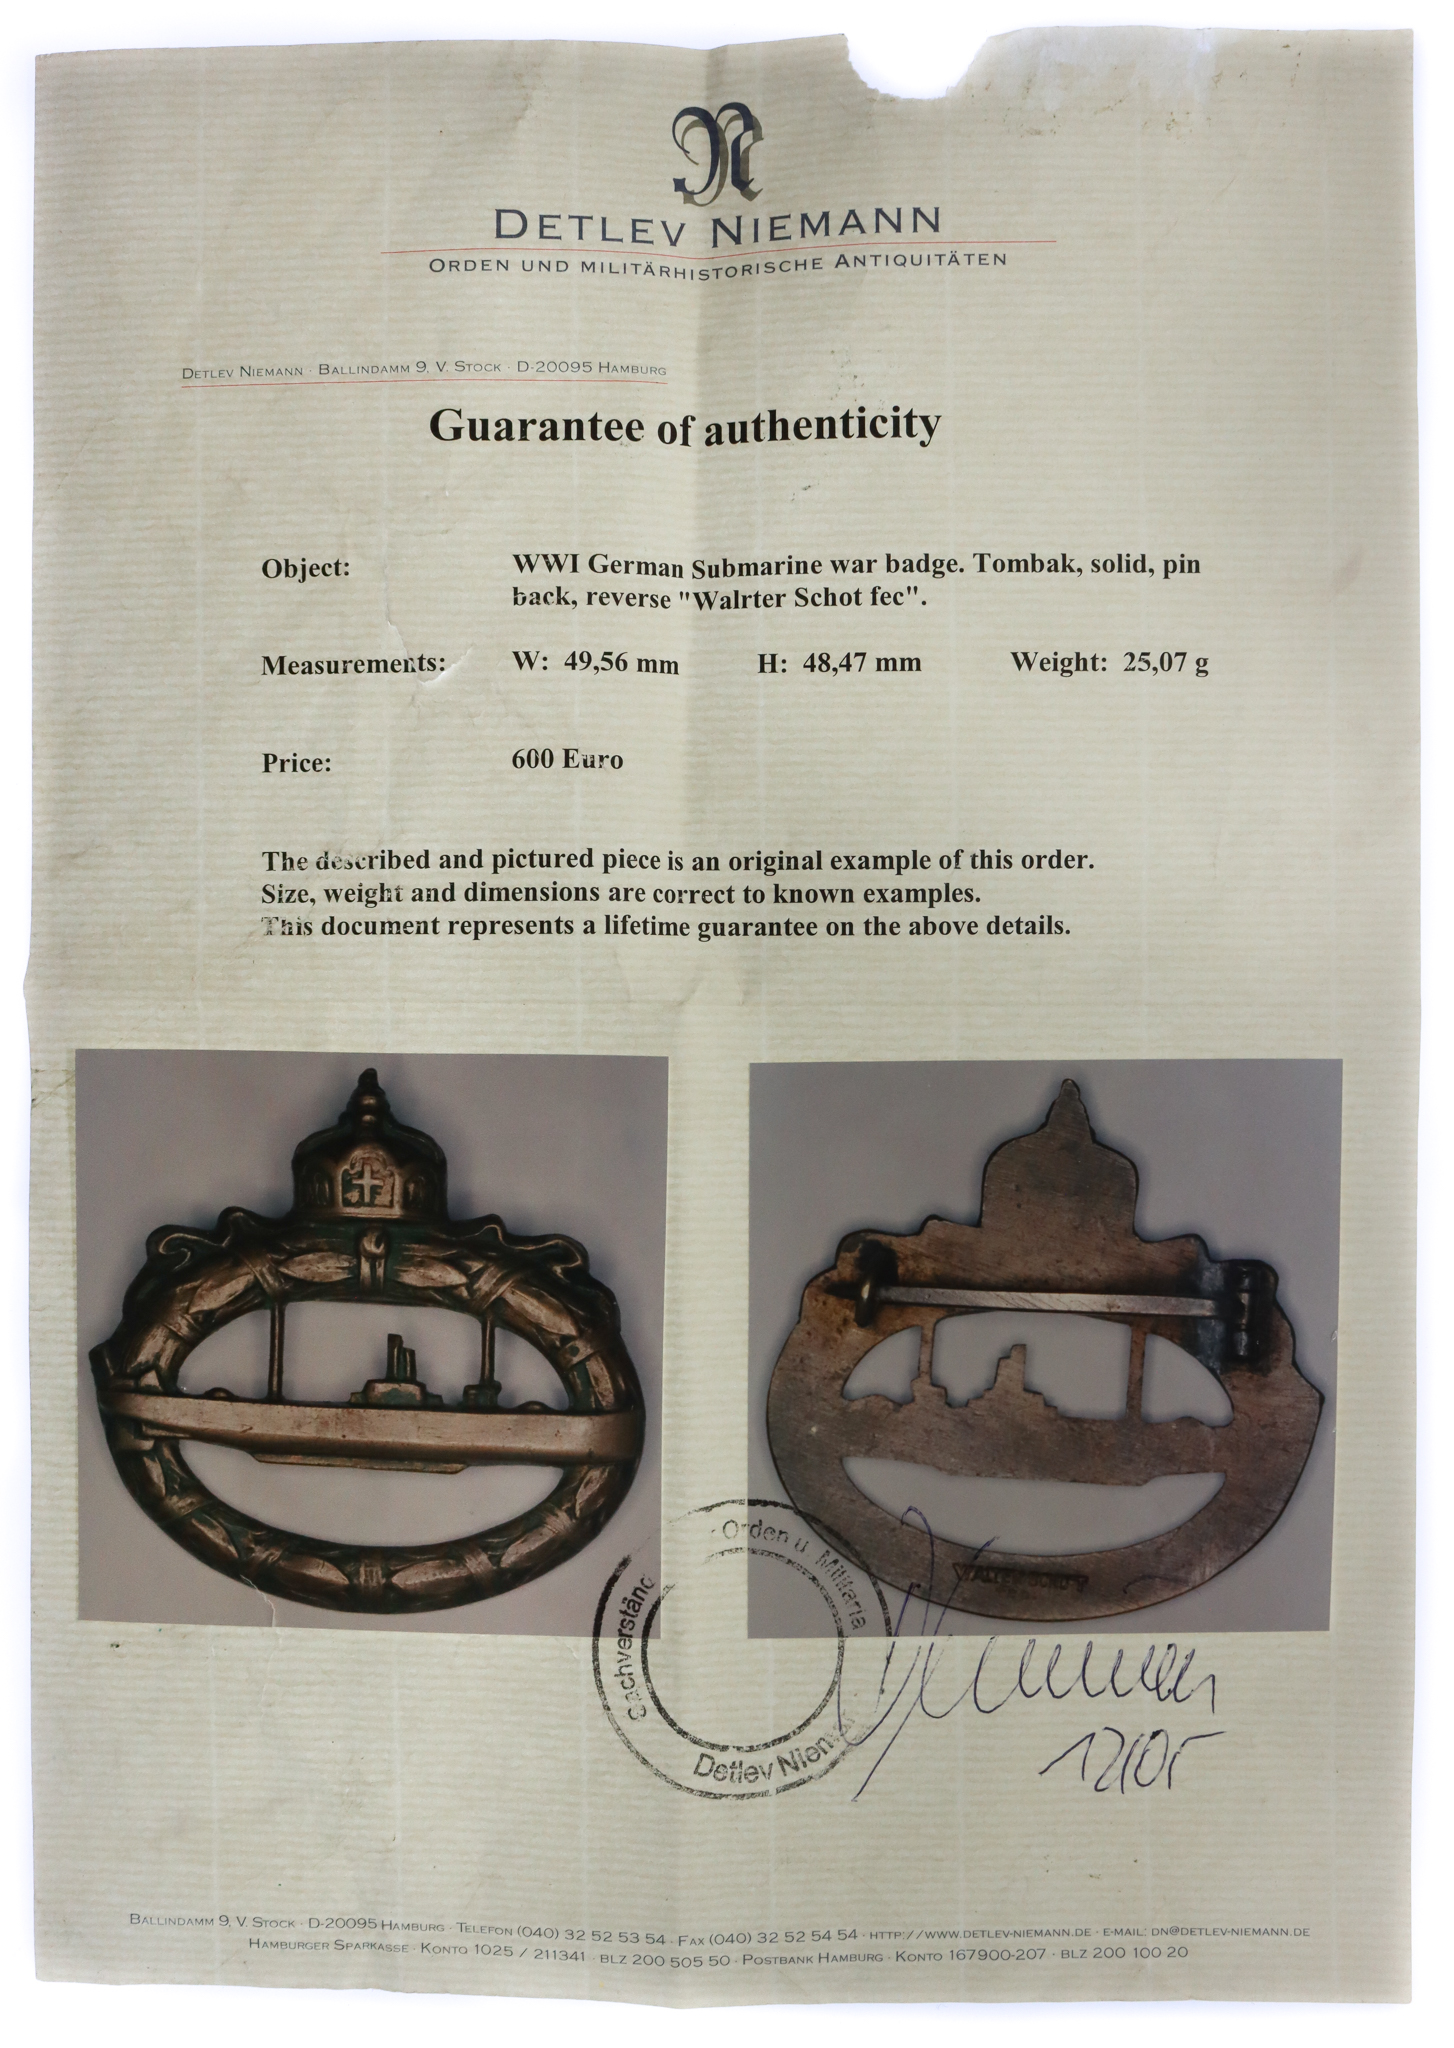 N
DETLEV NIEMANN
ORDEN UND MILITÄRHISTORISCHE ANTIQUITÄTEN
DETLEV NIEMANN · BALLINDAMM 9, V. STOCK · D-20095 HAMBURG
Guarantee of authenticity
Object: WWI German Submarine war badge. Tombak, solid, pin
back, reverse "Walrter Schot fec".
Measurements: W: 49,56 mm H: 48,47 mm Weight: 25,07 g
Price: 600 Euro
The described and pictured piece is an original example of this order.
Size, weight and dimensions are correct to known examples.
This document represents a lifetime guarantee on the above details.
WALTER SCHOTT
Orden u. Militaria
Sachverständ
Detlev Nieman
Niemann
12/05
BALLINDAMM 9, V. STOCK · D-20095 HAMBURG · TELEFON (040) 32 52 53 54 · FAX (040) 32 52 54 54 · HTTP://WWW.DETLEV-NIEMANN.DE · E-MAIL: DN@DETLEV-NIEMANN.DE
HAMBURGER SPARKASSE · KONTO 1025 / 211341 · BLZ 200 505 50 · POSTBANK HAMBURG · KONTO 167900-207 · BLZ 200 100 20